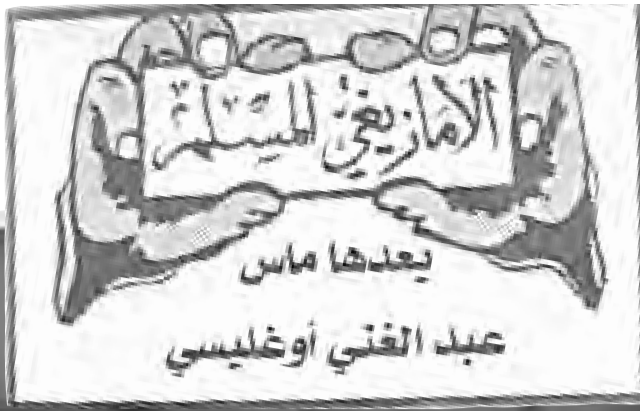 الأمازيغي المسلم
يعدها ماس
عبد الغني أوغليسي